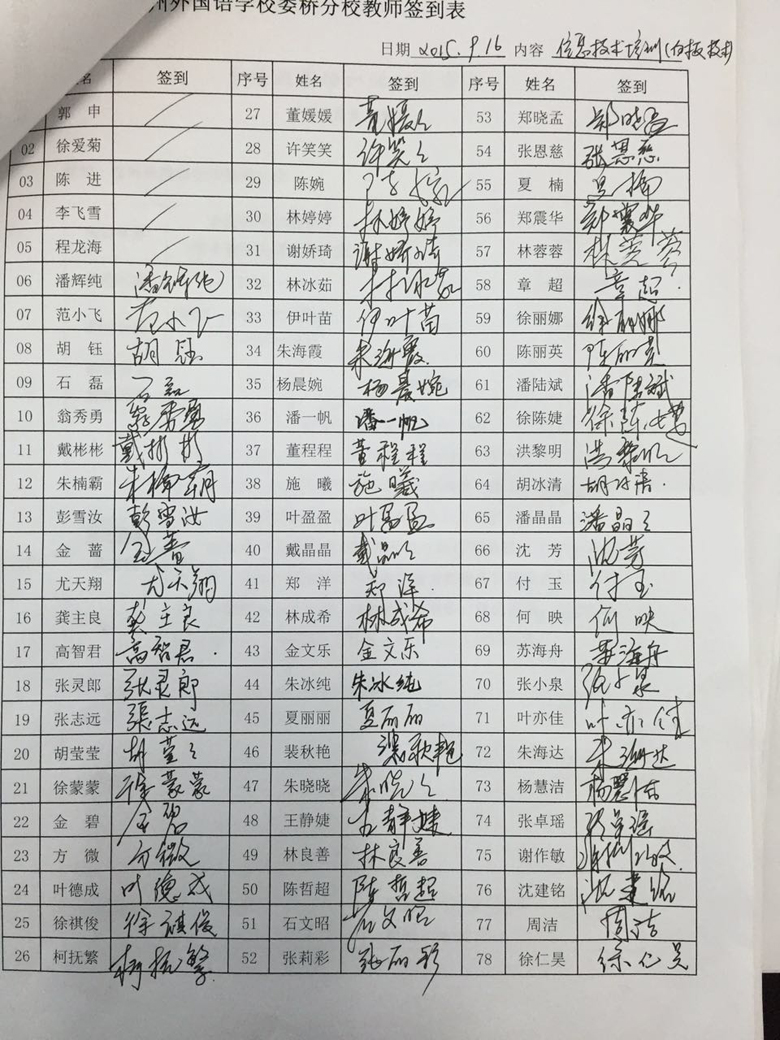 州外国语学校娄桥分校教师签到表
日期 2015.9.16 内容 信息技术培训(白板技术)
名 签到 序号 姓名 签到 序号 姓名 签到
郭申 / 27 董媛媛 董媛々 53 郑晓孟 郑晓孟
02 徐爱菊 / 28 许笑笑 许笑々 54 张恩慈 张恩慈
03 陈进 / 29 陈婉 陈婉 55 夏楠 夏楠
04 李飞雪 / 30 林婷婷 林婷婷 56 郑震华 郑震华
05 程龙海 / 31 谢娇琦 谢娇琦 57 林蓉蓉 林蓉蓉
06 潘辉纯 潘辉纯 32 林冰茹 林冰茹 58 章超 章超.
07 范小飞 范小飞 33 伊叶苗 伊叶苗 59 徐丽娜 徐丽娜
08 胡钰 胡钰 34 朱海霞 朱海霞 60 陈丽英 陈丽英
09 石磊 石磊 35 杨晨婉 杨晨婉 61 潘陆斌 潘陆斌
10 翁秀勇 翁秀勇 36 潘一帆 潘一帆 62 徐陈婕 徐陈婕
11 戴彬彬 戴彬彬 37 董程程 董程程 63 洪黎明 洪黎明
12 朱楠霸 朱楠霸 38 施曦 施曦 64 胡冰清 胡冰清.
13 彭雪汝 彭雪汝 39 叶盈盈 叶盈盈 65 潘晶晶 潘晶々
14 金蔷 金蔷 40 戴晶晶 戴晶々 66 沈芳 沈芳
15 尤天翔 尤天翔 41 郑洋 郑洋. 67 付玉 付玉
16 龚主良 龚主良 42 林成希 林成希 68 何映 何映
17 高智君 高智君. 43 金文乐 金文乐 69 苏海舟 苏海舟
18 张灵郎 张灵郎 44 朱冰纯 朱冰纯 70 张小泉 张小泉
19 张志远 張志远 45 夏丽丽 夏丽丽 71 叶亦佳 叶亦佳
20 胡莹莹 胡莹々 46 裴秋艳 裴秋艳 72 朱海达 朱海达
21 徐蒙蒙 徐蒙蒙 47 朱晓晓 朱晓々 73 杨慧洁 杨慧洁
22 金碧 金碧 48 王静婕 王静婕 74 张卓瑶 张卓瑶
23 方微 方微 49 林良善 林良善 75 谢作敏 谢作敏
24 叶德成 叶德成 50 陈哲超 陈哲超 76 沈建铭 沈建铭
25 徐祺俊 徐祺俊 51 石文昭 石文昭 77 周洁 周洁
26 柯抚繁 柯抚繁. 52 张莉彩 张丽彩 78 徐仁昊 徐仁昊